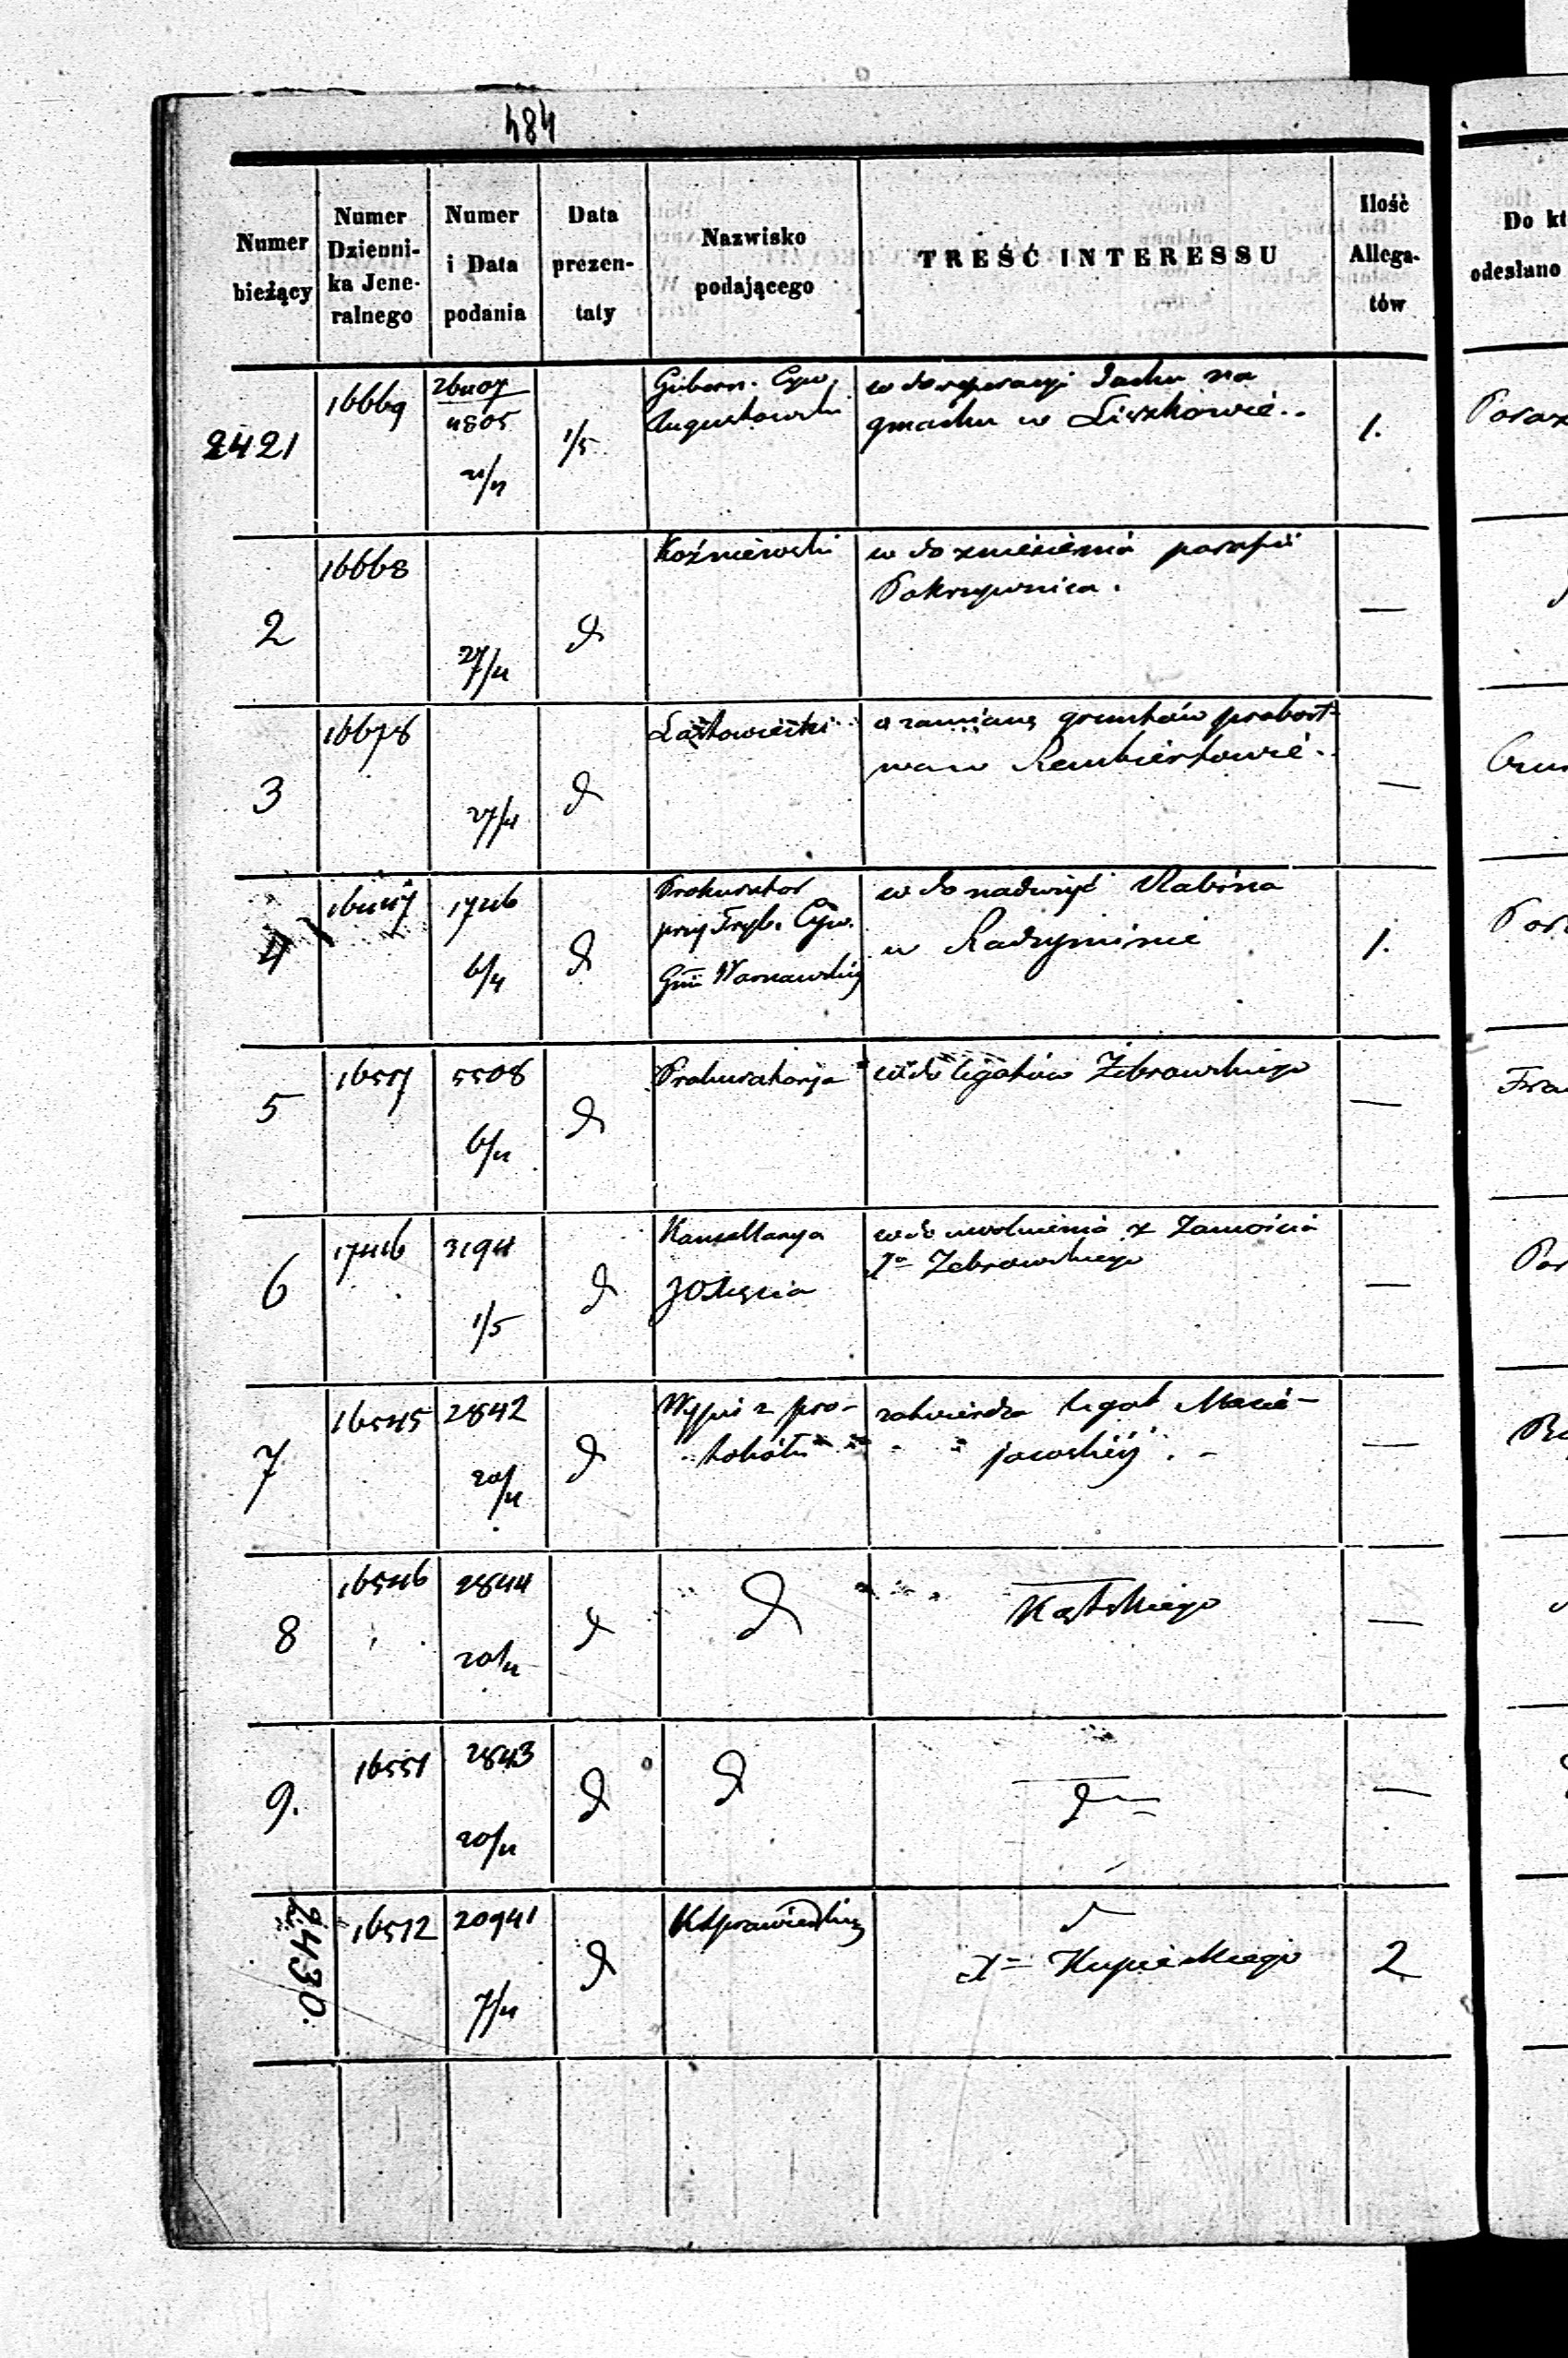 484
Numer bieżący
Numer Dzienni-ka Jene-ralnego
Numer i Data podania
Data prezen-taty
Nazwisko podającego
TREŚĆ INTERESSU
Ilość Allega-tów
Do kt
odesłano
2421
16669
26407
4805
21/4
1/5
Gubern. Cyw.
Augustowski
w do reperacyi dachu na
gmachu w Liszkowie
1.
2
16668
27/4
d
Koźniewski
w do zniesienia parafii
Pokrzywnica.
—
3
16678
27/4
d
o zamianę gruntów probost-
wa w Rembiertowie
—
4
16447
1746
6/4
d
Prokurator
przy Tryb. Cyw.
Gnii Warszawskiej
w do nadużyć Rabina
w Radzyminie
1.
5
16517
5508
6/4
d
Prokuratorya
w do legatów Żebrowskiego
—
6
17446
3194
1/5
d
Kancellarya
JOXięcia
w do uwolnienia z Zamościa
Xa Zebrowskiego
—
7
16545
2842
20/4
d
Wypis z pro-
tokółu
zatwierdza legat Macie-
jowskiej
—
8
16546
2844
20/4
d
d
Kątskiego
—
9.
16551
2843
20/4
d
d
d
—
2430.
16512
20941
7/4
d
KSprawiedliw
X= Kupieckiego
2